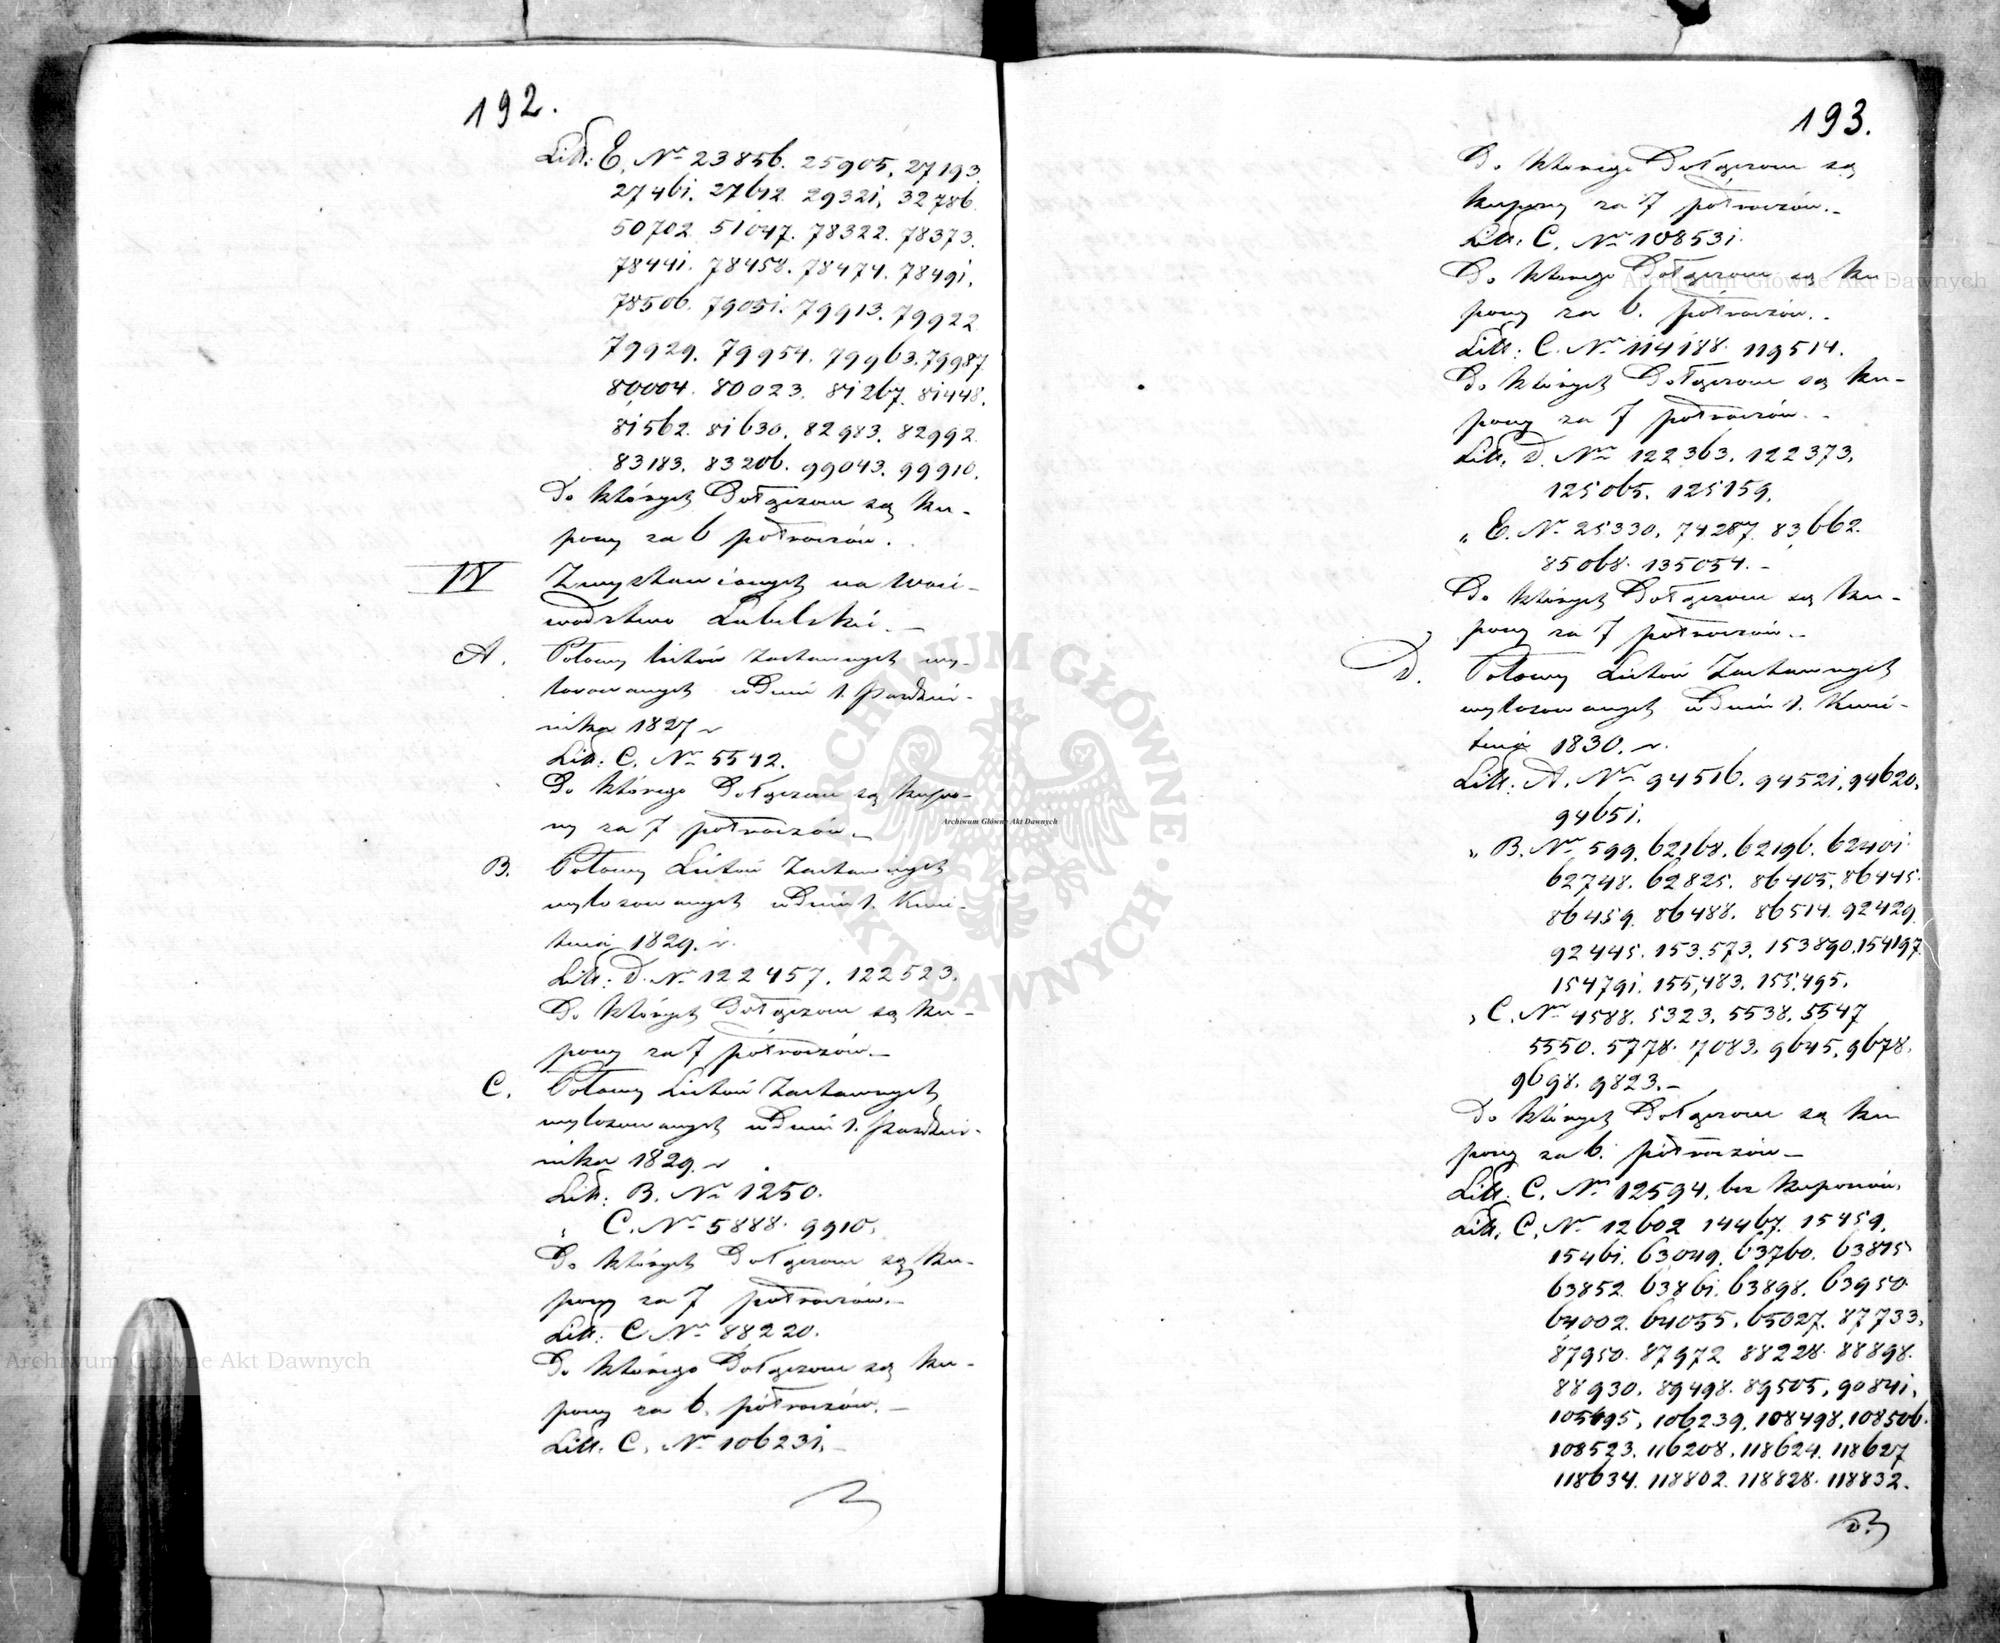 192.
Litt: E. Nr 23856. 25905. 27193
27461. 27612. 29321. 32786.
50702. 51047. 78322. 78373.
78441. 78458. 78474. 78491.
78506. 79051. 79913. 79922
79929. 79954. 79963. 79987
80004. 80023. 81267. 81448.
81562. 81630. 82983. 82992.
83183. 83206. 99043. 99910.
Do których Dołączone są ku-
pony za 6 półroczów.
IV Z wystawionych na Woie-
wodztwo Lubelskie. –
A. Połowy listów zastawnych wy-
losowanych w Dniu 1. Paździer-
nika 1827 r
Litt: C. Nr 5542.
Do którego Dołączone są kupo-
ny za 7 półroczów. –
B. Połowy Listów Zastawnych
wylosowanych w Dniu 1. Kwie-
tnia 1829. r.
Litt: D. Nr 122457. 122523.
Do których Dołączone są ku-
pony za 7 półroczów. –
C. Połowy Listów Zastawnych
wylosowanych w Dniu 1. Paździer-
nika 1829. r
Litt: B. Nr 1250.
„ C. Nr 5888. 9910.
Do których Dołączone są ku-
pony za 7 półroczów. –
Litt: C Nr 88220.
Do którego Dołączone są ku-
pony za 6. półroczów. –
Litt. C. Nr 106231. –
193.
Do którego Dołączone są
kupony za 7 półroczów. –
Litt: C. Nr 108531.
Do którego Dołączone są ku
pony za 6. półroczów. .
Litt: C. Nr 114188. 119514.
Do których Dołączone są ku-
pony za 7 półroczów. –
Litt. D. Nr 122363. 122373.
125065. 125159.
„ E. Nr 25330. 74287. 83662.
85068. 135054. –
Do których Dołączone są ku-
pony za 7 półroczów. –
D. Połowy Listów Zastawnych
wylosowanych w Dniu 1. Kwie-
tnia 1830. r.
Litt: A. Nr 94516. 94521. 94620.
94651.
„ B. Nr 599. 62168. 62196. 62401.
62748. 62825. 86405. 86445.
86459. 86488. 86514. 92429.
92445. 153573. 153890. 154197.
154791. 155483. 155495.
„ C. Nr 4588. 5323. 5538. 5547
5550. 5778. 7083. 9645. 9678.
9698. 9823. –
Do których Dołączone są ku
pony za 6. półroczów –
Litt. C. Nr 12594. bez kuponów.
Litt. C. Nr 12602 14467. 15459.
15461. 63049. 63760. 63815
63852. 63861. 63898. 63950
64002. 64055. 65027. 87733.
87950. 87972 88228. 88898.
88930. 89498. 89505. 90841.
105695. 106239. 108498. 108506.
108523. 116208. 118624. 118627
118634. 118802. 118828. 118832.
Archiwum Główne Akt Dawnych
Archiwum Główne Akt Dawnych
Archiwum Główne Akt Dawnych
ARCHIWUM GŁÓWNE · AKT DAWNYCH ·